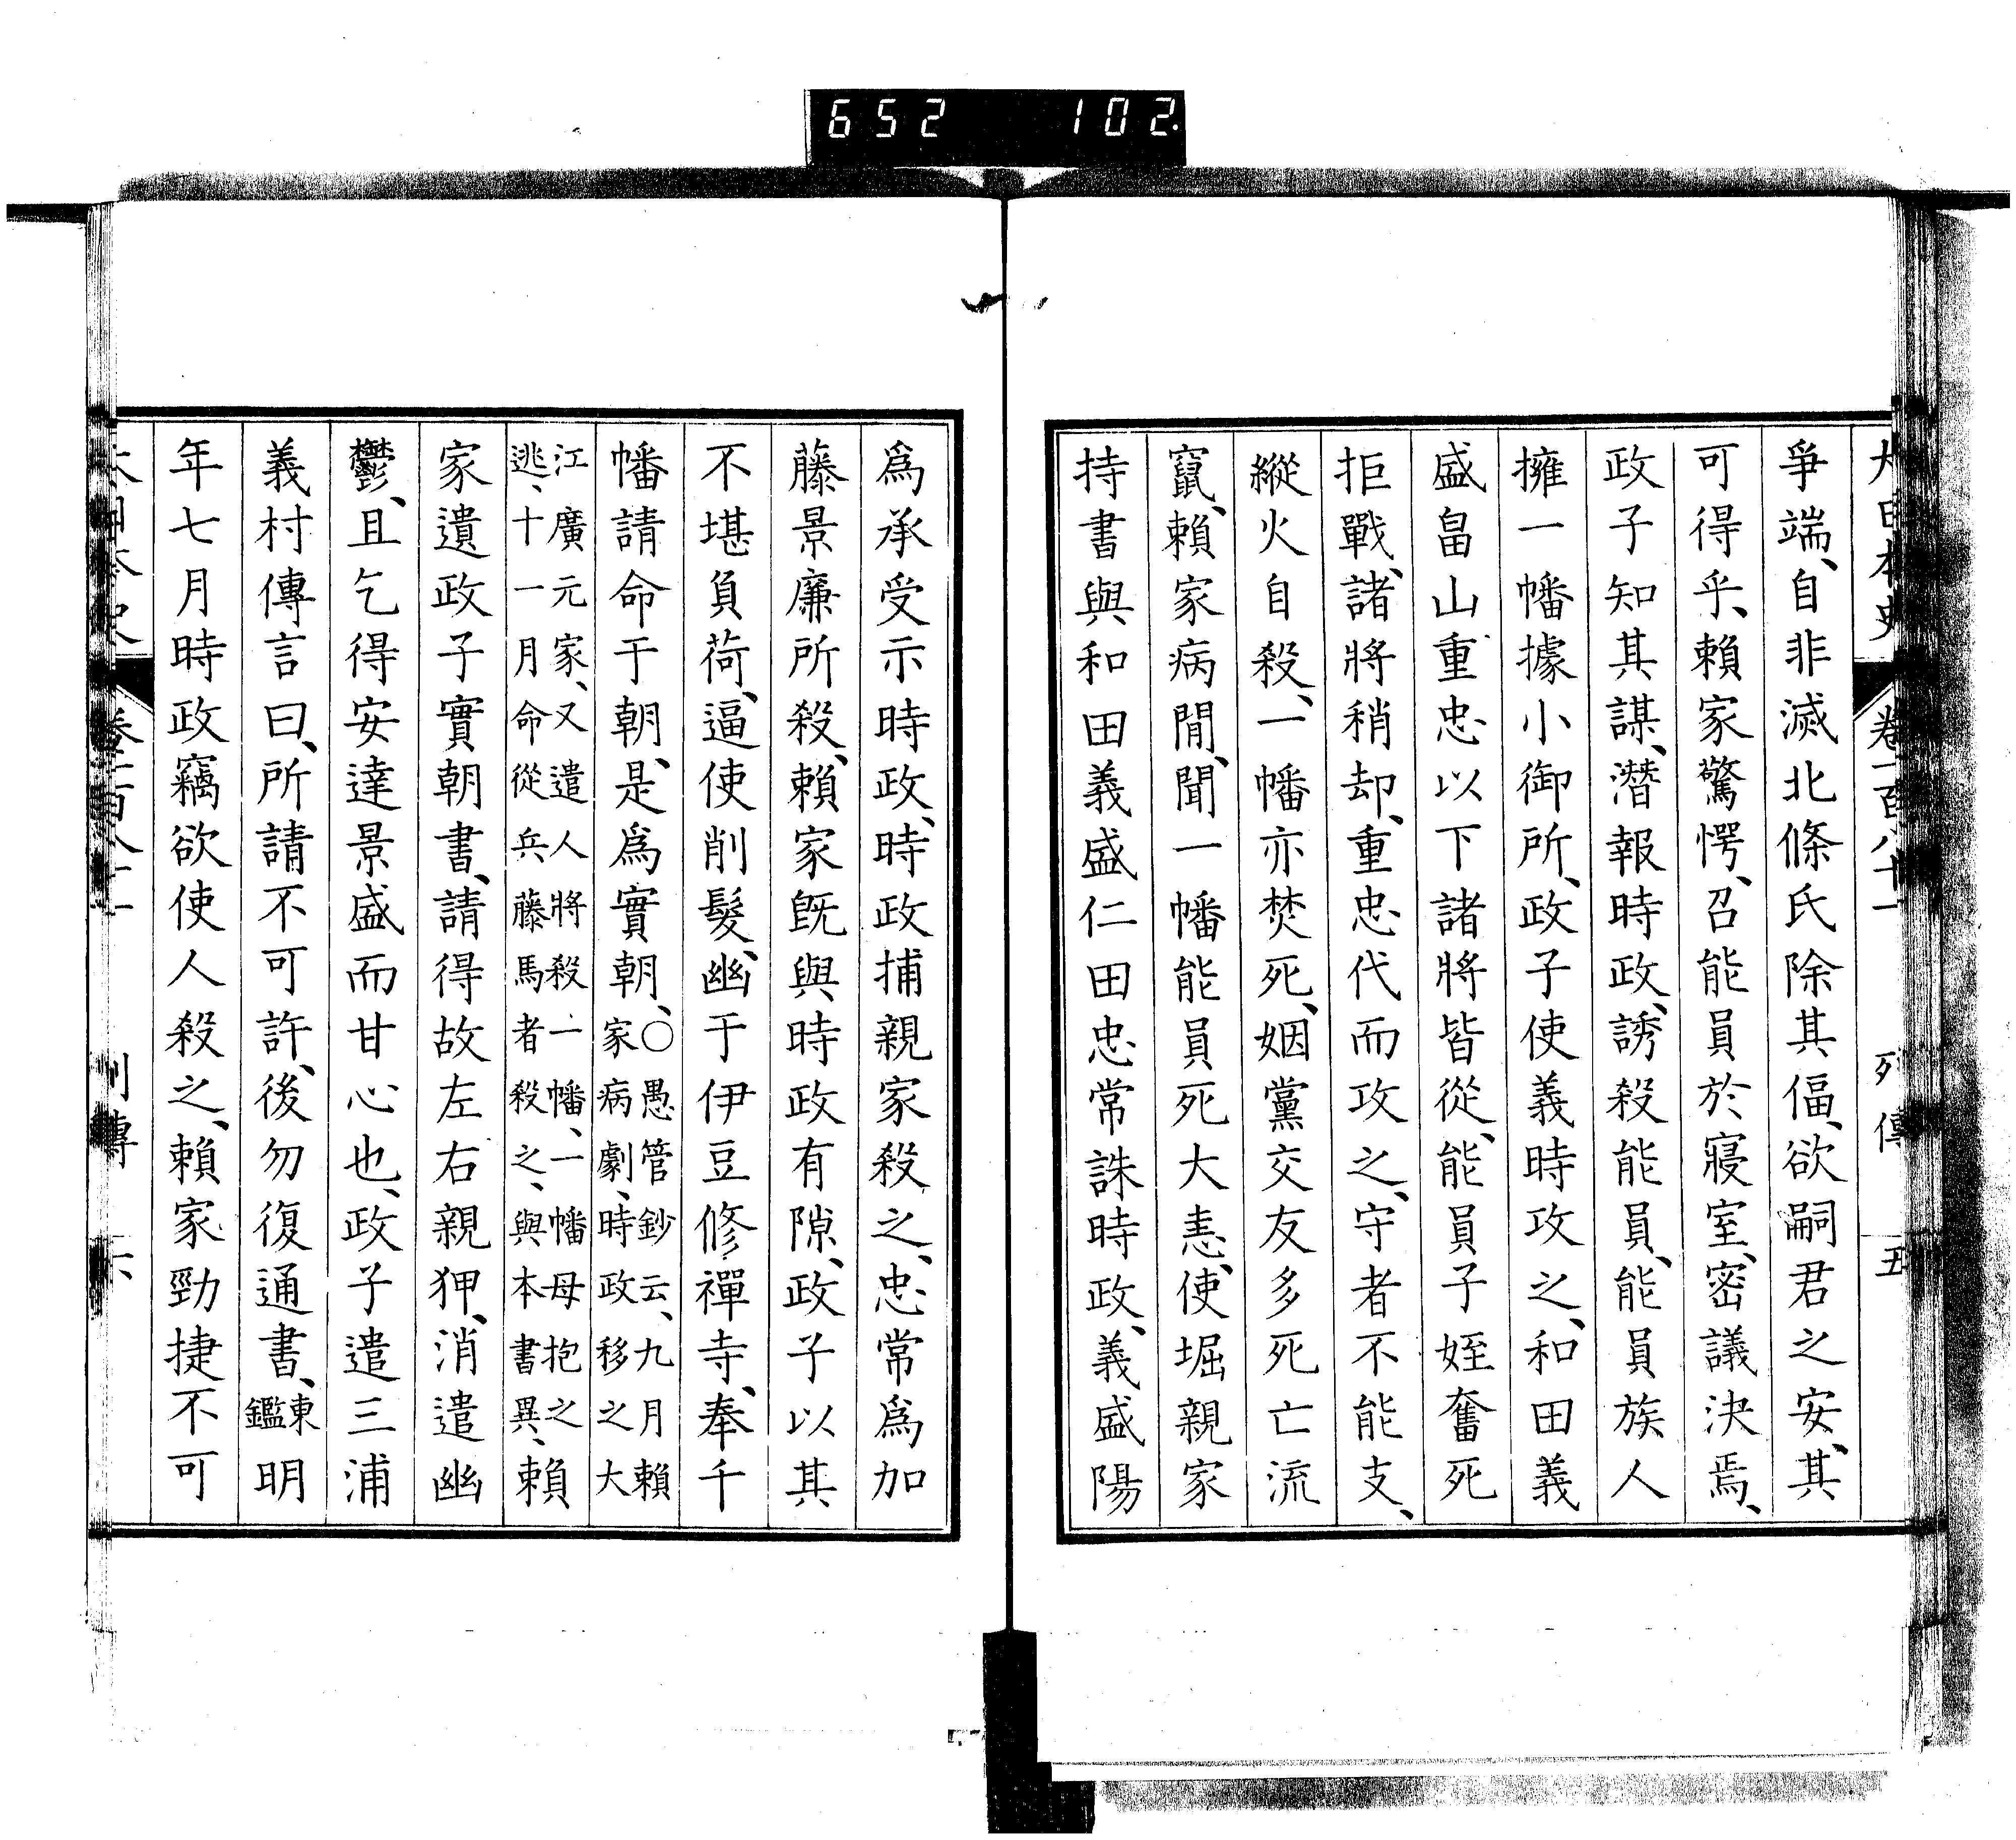 652 102.
大日本史 卷一百八十一 列傳 五
爭端、自非滅北條氏除其偪、欲嗣君之安、其
可得乎、賴家驚愕、召能員於寢室、密議決焉、
政子知其謀、潛報時政、誘殺能員、能員族人
擁一幡據小御所、政子使義時攻之、和田義
盛畠山重忠以下諸將皆從、能員子姪奮死
拒戰、諸將稍却、重忠代而攻之、守者不能支、
縱火自殺、一幡亦焚死、姻黨交友多死亡流
竄、賴家病閒、聞一幡能員死大恚、使堀親家
持書與和田義盛仁田忠常誅時政、義盛陽
爲承受示時政、時政捕親家殺之、忠常爲加
藤景廉所殺、賴家旣與時政有隙、政子以其
不堪負荷、逼使削髮、幽于伊豆修禪寺、奉千
幡請命于朝、是爲實朝、〇愚管鈔云、九月賴家病劇、時政移之大
江廣元家、又遣人將殺一幡、一幡母抱之逃、十一月命從兵藤馬者殺之、與本書異、賴
家遺政子實朝書、請得故左右親狎、消遣幽
鬱、且乞得安達景盛而甘心也、政子遣三浦
義村傳言曰、所請不可許、後勿復通書、東鑑明
年七月時政竊欲使人殺之、賴家勁捷不可
列傳 六